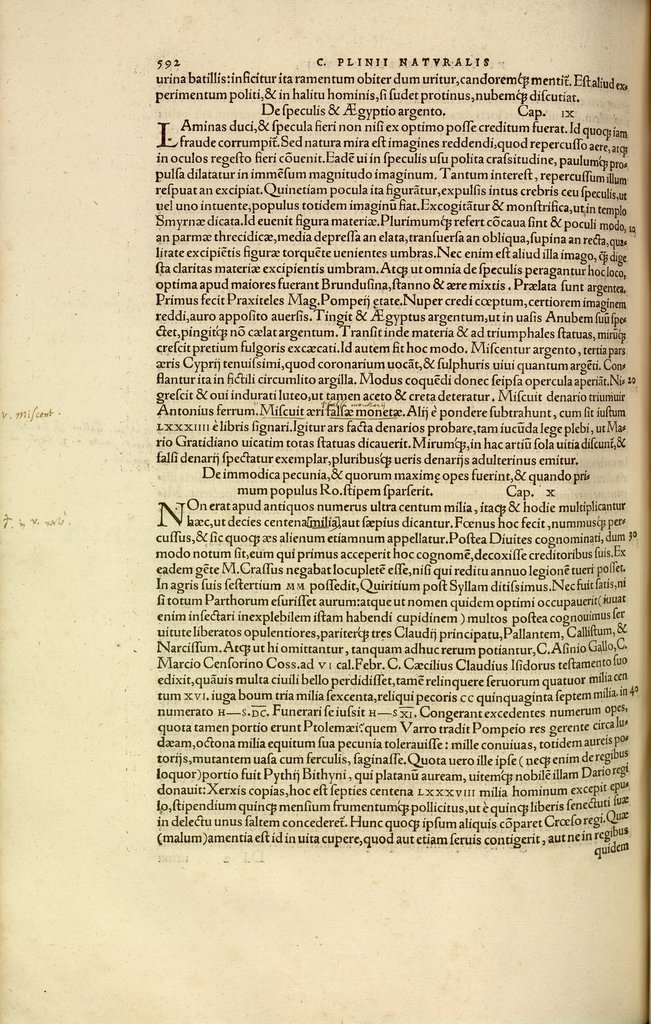 592 C. PLINII NATVRALIS
urina batillis: inficitur ita ramentum obiter dum uritur, candoremq́ꝫ mentit̃. Est aliud ex
perimentum politi, & in halitu hominis, si sudet protinus, nubemq́ꝫ discutiat.
De speculis & Ægyptio argento. Cap. IX
LAminas duci, & specula fieri non nisi ex optimo posse creditum fuerat. Id quoqꝫ iam
fraude corrumpit̃. Sed natura mira est imagines reddendi, quod repercusso aere, atqꝫ
in oculos regesto fieri cōuenit. Eadē ui in speculis usu polita crassitudine, paulumq́ꝫ pro
pulsa dilatatur in immēsum magnitudo imaginum. Tantum interest, repercussum illum
respuat an excipiat. Quinetiam pocula ita figurātur, expulsis intus crebris ceu speculis, ut
uel uno intuente, populus totidem imaginū fiat. Excogitātur & monstrifica, ut in templo
Smyrnæ dicata. Id euenit figura materiæ. Plurimumq́ꝫ refert cōcaua sint & poculi modo, 10
an parmæ threcidicæ, media depressa an elata, transuersa an obliqua, supina an recta, qua
litate excipiētis figuræ torquēte uenientes umbras. Nec enim est aliud illa imago, q̄ꝫ dige
sta claritas materiæ excipientis umbram. Atqꝫ ut omnia de speculis peragantur hoc loco,
optima apud maiores fuerant Brundusina, stanno & ære mixtis. Prælata sunt argentea.
Primus fecit Praxiteles Mag. Pompeij ętate. Nuper credi cœptum, certiorem imaginem
reddi, auro apposito auersis. Tingit & Ægyptus argentum, ut in uasis Anubem suū spe
ctet, pingitq́ꝫ nō cælat argentum. Transit inde materia & ad triumphales statuas, mirūq́ꝫ
crescit pretium fulgoris excæcati. Id autem fit hoc modo. Miscentur argento, tertia pars
æris Cyprij tenuissimi, quod coronarium uocāt, & sulphuris uiui quantum argēti. Con
flantur ita in fictili circumlito argilla. Modus coquēdi donec seipsa opercula aperiāt. Ni- 20
grescit & oui indurati luteo, ut tamen aceto & creta deteratur. Miscuit denario triumuir
v. miscent. Antonius ferrum. Miscuit æri falsæ monetæ. Alij è pondere subtrahunt, cum sit iustum
LXXXIIII è libris signari. Igitur ars facta denarios probare, tam iucūda lege plebi, ut Ma-
rio Gratidiano uicatim totas statuas dicauerit. Mirumq́ꝫ, in hac artiū sola uitia discunt̃, &
falsi denarij spectatur exemplar, pluribusq́ꝫ ueris denarijs adulterinus emitur.
De immodica pecunia, & quorum maximę opes fuerint, & quando pri-
mum populus Ro. stipem sparserit. Cap. X
NOn erat apud antiquos numerus ultra centum milia, itaqꝫ & hodie multiplicantur
hæc, ut decies centena milia, aut sæpius dicantur. Fœnus hoc fecit, nummusq́ꝫ per-
cussus, & sic quoqꝫ æs alienum etiamnum appellatur. Postea Diuites cognominati, dum 30
modo notum sit, eum qui primus acceperit hoc cognomē, decoxisse creditoribus suis. Ex
eadem gēte M. Crassus negabat locupletē esse, nisi qui reditu annuo legionē tueri posset.
In agris suis sestertium MM possedit, Quiritium post Syllam ditissimus. Nec fuit satis, ni
si totum Parthorum esurisset aurum: atque ut nomen quidem optimi occupauerit (iuuat
enim insectari inexplebilem istam habendi cupidinem) multos postea cognouimus ser
uitute liberatos opulentiores, pariterq́ꝫ tres Claudij principatu, Pallantem, Callistum, &
Narcissum. Atqꝫ ut hi omittantur, tanquam adhuc rerum potiantur, C. Asinio Gallo, C.
Marcio Censorino Coss. ad VI cal. Febr. C. Cæcilius Claudius Isidorus testamento suo
edixit, quāuis multa ciuili bello perdidisset, tamē relinquere seruorum quatuor milia cen
tum XVI. iuga boum tria milia sexcenta, reliqui pecoris CC quinquaginta septem milia. in 40
numerato H—S. DC. Funerari se iussit H—S XI. Congerant excedentes numerum opes,
quota tamen portio erunt Ptolemæi? quem Varro tradit Pompeio res gerente circa Iu-
dæam, octona milia equitum sua pecunia tolerauisse: mille conuiuas, totidem aureis po-
torijs, mutantem uasa cum ferculis, saginasse. Quota uero ille ipse (neqꝫ enim de regibus
loquor) portio fuit Pythij Bithyni, qui platanū auream, uitemq́ꝫ nobilē illam Dario regi
donauit: Xerxis copias, hoc est septies centena LXXXVIII milia hominum excepit epu-
lo, stipendium quinqꝫ mensium frumentumq́ꝫ pollicitus, ut è quinqꝫ liberis senectuti suæ
in delectu unus saltem concederet̃. Hunc quoqꝫ ipsum aliquis cōparet Crœso regi. Quæ
(malum) amentia est id in uita cupere, quod aut etiam seruis contigerit, aut ne in regibus
quidem